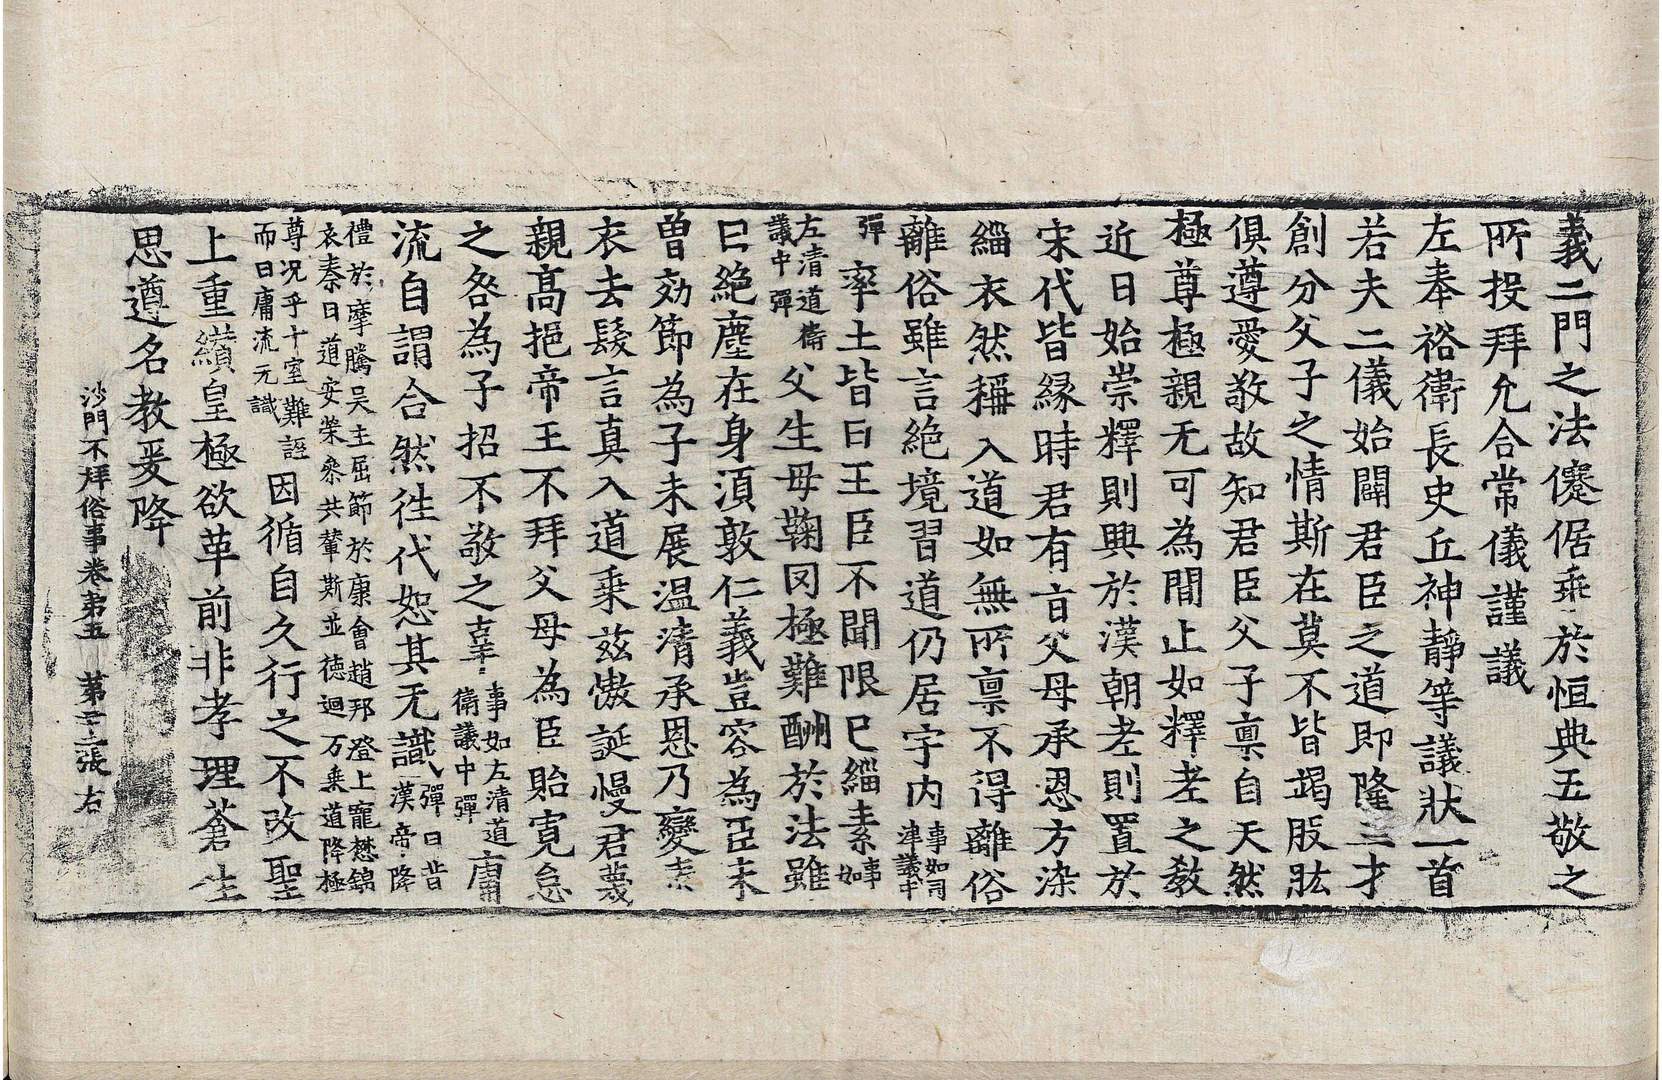 義二門之法儍倨乖於恒典五敬之
所投拜允合常儀謹議
左奉裕衛長史丘神靜等議狀一首
若夫二儀始闢君臣之道即隆三才
創分父子之情斯在莫不皆竭股肱
俱遵愛敬故知君臣父子禀自天然
極尊極親无可為間止如釋老之教
近日始崇釋則興於漢朝老則置於
宋代皆緣時君有言父母承恩方染
緇衣然稱入道如無所禀不得離俗
離俗雖言絶境習道仍居宇内事如司
津議中
彈率土皆曰王臣不聞限已緇素事如
左清道衛
議中彈父生母鞠罔極難酬於法雖
曰絶塵在身須敦仁義豈容為臣未
曾効節為子未展温清承恩乃變素
衣去髮言真入道乗兹慠誕慢君蔑
親高挹帝王不拜父母為臣貽寛怠
之咎為子招不敬之辜事如左清道
衛議中彈庸
流自謂合然徃代恕其无識彈曰昔
漢帝降
禮於摩騰吴主屈節於康會趙邦澄上寵懋錦
衣秦日道安榮叅共輦斯並德迴万乗道降極
尊况乎十室難誣
而曰庸流无識因循自久行之不改聖
上重纘皇極欲革前非孝理蒼生
思遵名教爰降
沙門不拜俗事卷第五　第　張　右